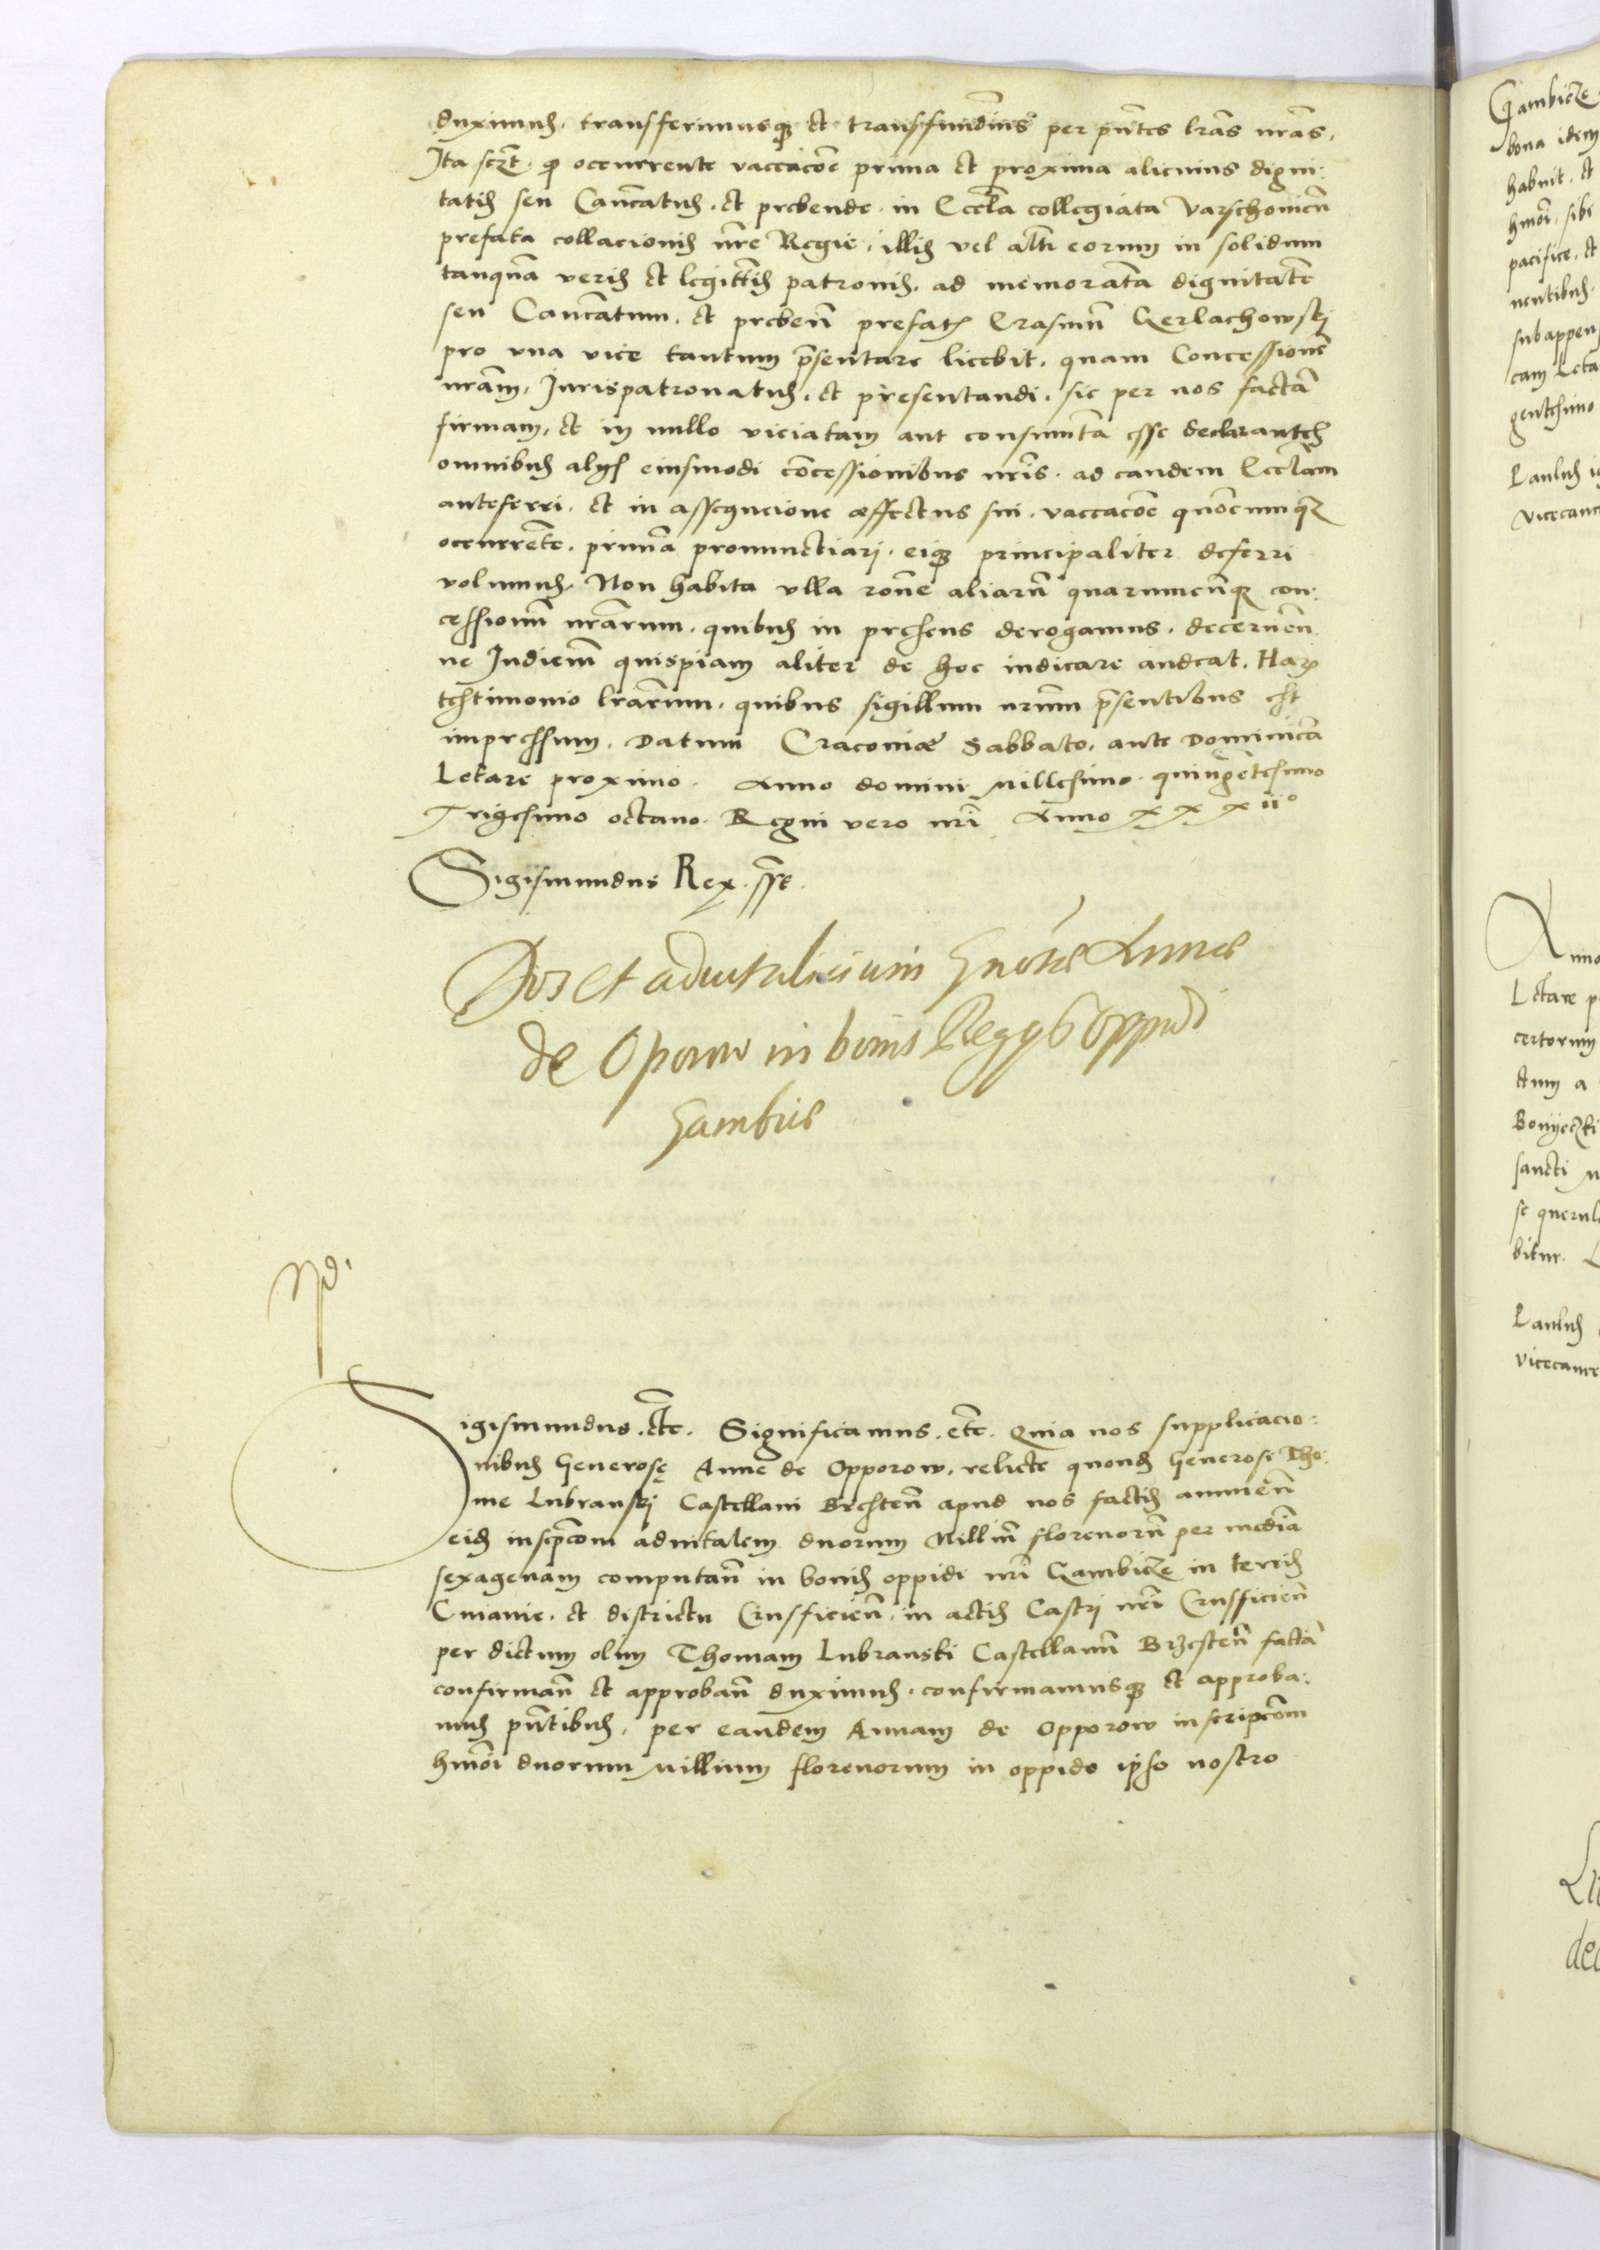 duximus. transferimusq3 et transfundim9 per pn̄tes lrās nrās.
Ita scz̄t. q3 occurrente vaccacōe prima et proxima alicuius digni:
tatis seu Canc̄atus. et prebende. in Eccl̄a collegiata Varschovien̄
prefata collacionis nr̄e Regie, illis vel alt̄i eorum in solidum
tanqūa veris et legittīs patronis. ad memoratā dignitatē
seu Canc̄atum. et preben̄ prefatū Erasmū Gerlachowski
pro vna vice tantum p̄sentare licebit. quam Concessionē
nrām, Jurispatronatus. et presentandi. sic per nos factā
firmam, et in nullo viciatam aut consumtā esse declarantes
omnibus alijs eiusmodi cōcessionibus nr̄is. ad eandem Eccl̄am
anteferri. et in assequcione æffectus sui. vaccacōe quōcumq3
occurrēte. primā pronunctiari. eiq3 principaliter deferri
volumus. Non habita vlla rōne aliarū quarumcūq3 con:
cessionū nrārum. quibus in presens derogamus. decernen̄
ne Judicum̄ quispiam aliter de hoc iudicare audeat. Har3
testimonio lrārum. quibus sigillum nrūm p̄sentibus est
impressum. Datum Cracoviæ Sabbato. ante Dominicā
Letare proximo. Anno domini Millesimo. quingētesimo
Trigesimo octavo. Regni vero nr̄i Anno xxxii°
Sigismundus Rex. sst̄.
Dos et advitalicium Gnōse Annæ
de Oporow in bonis Regys oppidi
Gambice
Sigismundus. etc̄. Significamus. etc̄. Quia nos supplicacio:
nibus Generosę Anne de Opporow. relicte quond̄ Generosi Tho:
me Lubranski Castellani Bresten̄ apud nos factis annuen̄
eid̄ inscp̄com advitalem duorum Milliū florenorū per mediā
sexagenam computan̄ in bonis oppidi nr̄i Gambicze in terris
Cuiavie. et districtu Crusficien̄. in actis Castri nr̄i Crusficien̄
per dictum olim Thomam Lubranski Castellanū Brzesten̄ factā
confirman̄ et approban̄ duximus. confirmamusq3 et approba:
mus pn̄tibus. per eandem Annam de Opporow inscripcōm
hmōi duorum Millium florenorum in oppido ipso nostro
Gambicze
bona idem
habuit. et
hmōi. sibi
pacifice. et
nentibus.
subappen
cam Leta
gentesimo
Paulus
vicecanc
Anno
Letare p
certorum
ctum a
Boniieczki
sancti
se querul
bitur.
Paulus
vicecanc